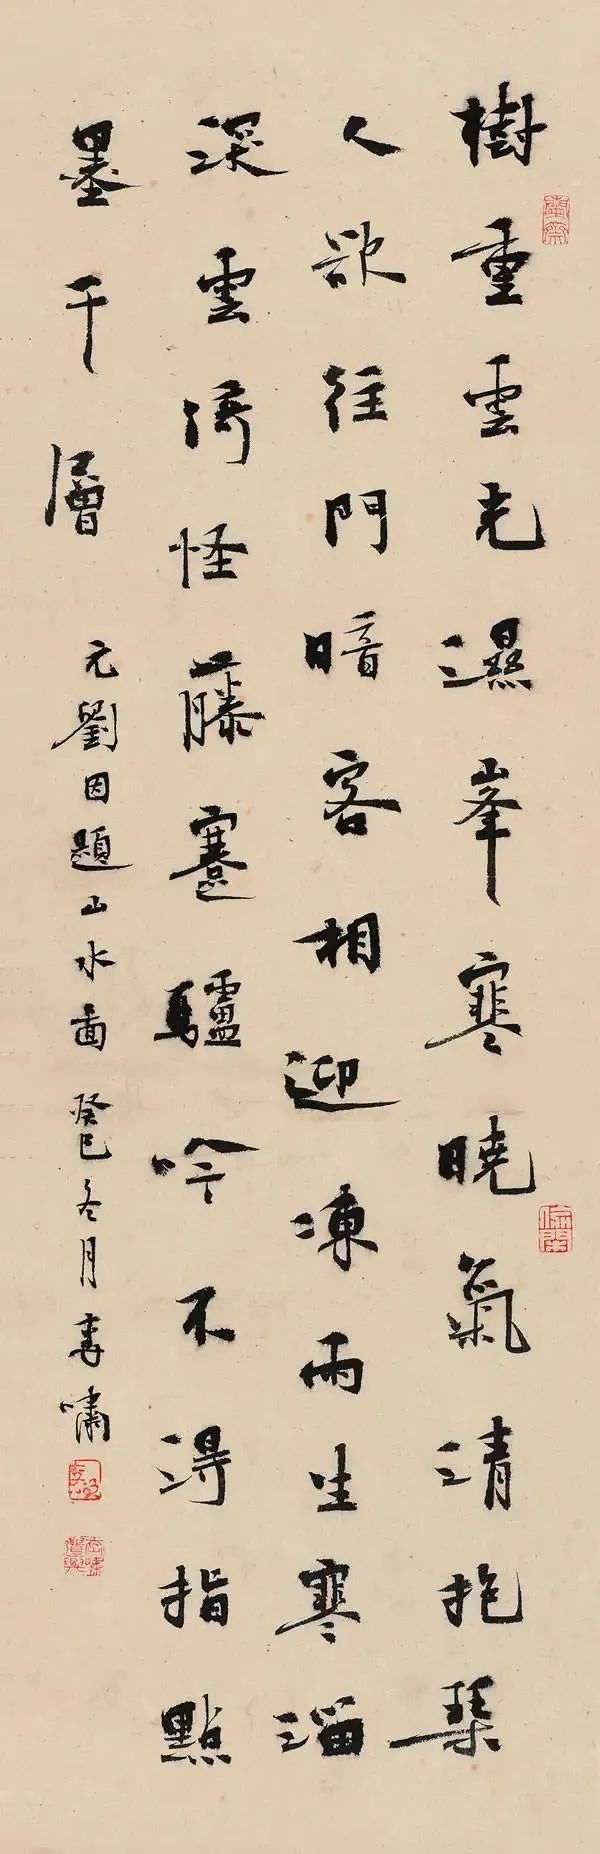 樹重雲光濕峯寒曉氣清抱琹
人欲往門暗客相迎凍雨生寒溜
深雲倚怪藤蹇驢吟不得指點
墨千層
元劉因題山水圖 癸巳冬月李嘯